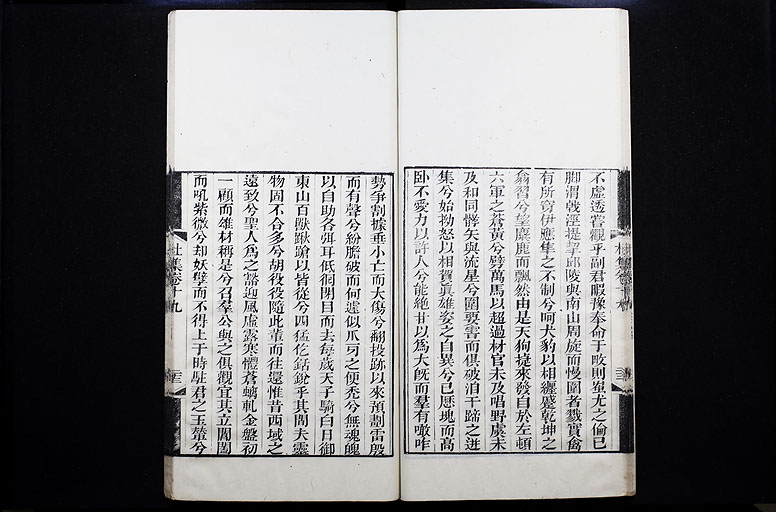 不虛透嘗觀乎副君暇豫奉命于畋則蚩尤之倫已
腳渭戟涇提挈邱陵與南山周旋而慢圍者戮實禽
有所穷伊鷹隼之不制兮呵犬豹以相纏蹙乾坤之
翕習兮望麋鹿而飄然由是天狗捷來發自於左頓
六軍之蒼黃兮劈萬馬以超過材官未及唱野虞未
及和冏髇矢與流星兮圍要害而俱破洎千蹄之迸
集兮始拗怒以相賀眞雄姿之自異兮已歷塊而高
卧不愛力以許人兮能絕甘以爲大旣而羣有噉咋
勢爭割據垂小亡而大傷兮翻投跡以來預劃雷殷
而有聲兮紛膽破而何遽似爪牙之便禿兮無魂魄
以自助各弭耳低徊閉目而去每歲天子騎白日御
東山百獸蹴蹌以皆從兮四猛仡銛銳乎其間夫靈
物固不合多兮胡役役隨此輩而往還惟昔西域之
遠致兮聖人爲之豁迎風虛露寒體蒼螭軋金盤初
一顧而雄材稱是兮召羣公與之俱觀宜其立閶闔
而吼紫微兮却妖孽而不得上干時駐君之玉輦兮
杜集卷十九